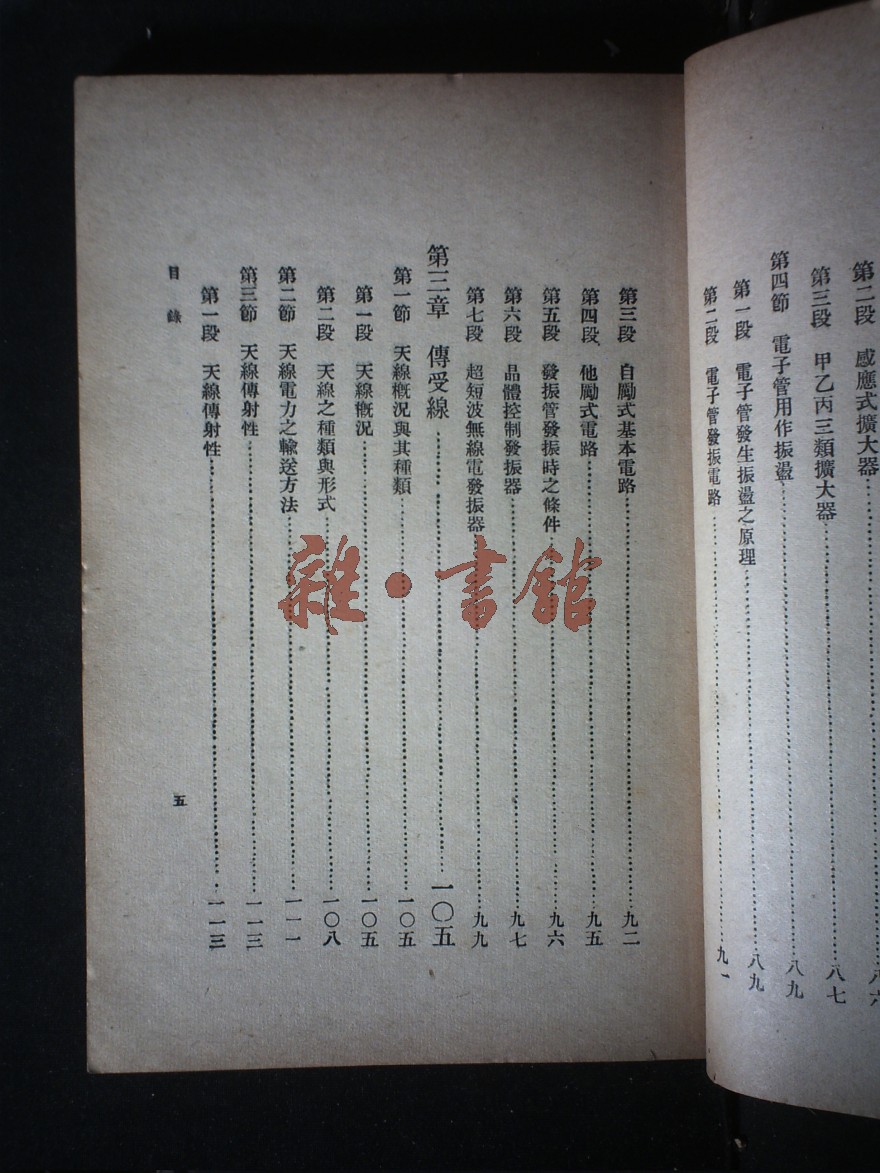 第二段 感應式擴大器……八六
第三段 甲乙丙三類擴大器……八七
第四節 電子管用作振盪……八九
第一段 電子管發生振盪之原理……八九
第二段 電子管發振電路……九一
第三段 自勵式基本電路……九二
第四段、他勵式電路……九五
第五段 發振管發振時之條件……九六
第六段 晶體控制發振器……九七
第七段 超短波無線電發振器……九九
第三章 傳受線……一〇五
第一節 天線概況與其種類……一〇五
第一段 天線概況……一〇五
第二段 天線之種類與形式……一〇八
第二節 天線電力之輸送方法……一一一
第三節 天線傳射性……一一三
第一段 天線傳射性……一一三
目錄
五
雜·書館